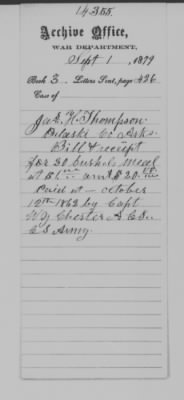 14.355.
Archive Office,
WAR DEPARTMENT,
Sept 1, 1879
Book E. Letters Sent, page 426
Case of
Jas. H. Thompson
Pulaski Co Arks.
Bill & receipt
for 20 bushels meal
at $1.00 amt $20.
Paid at October
12th 1862 by Capt
W. Y. Chester A C S
C S Army.